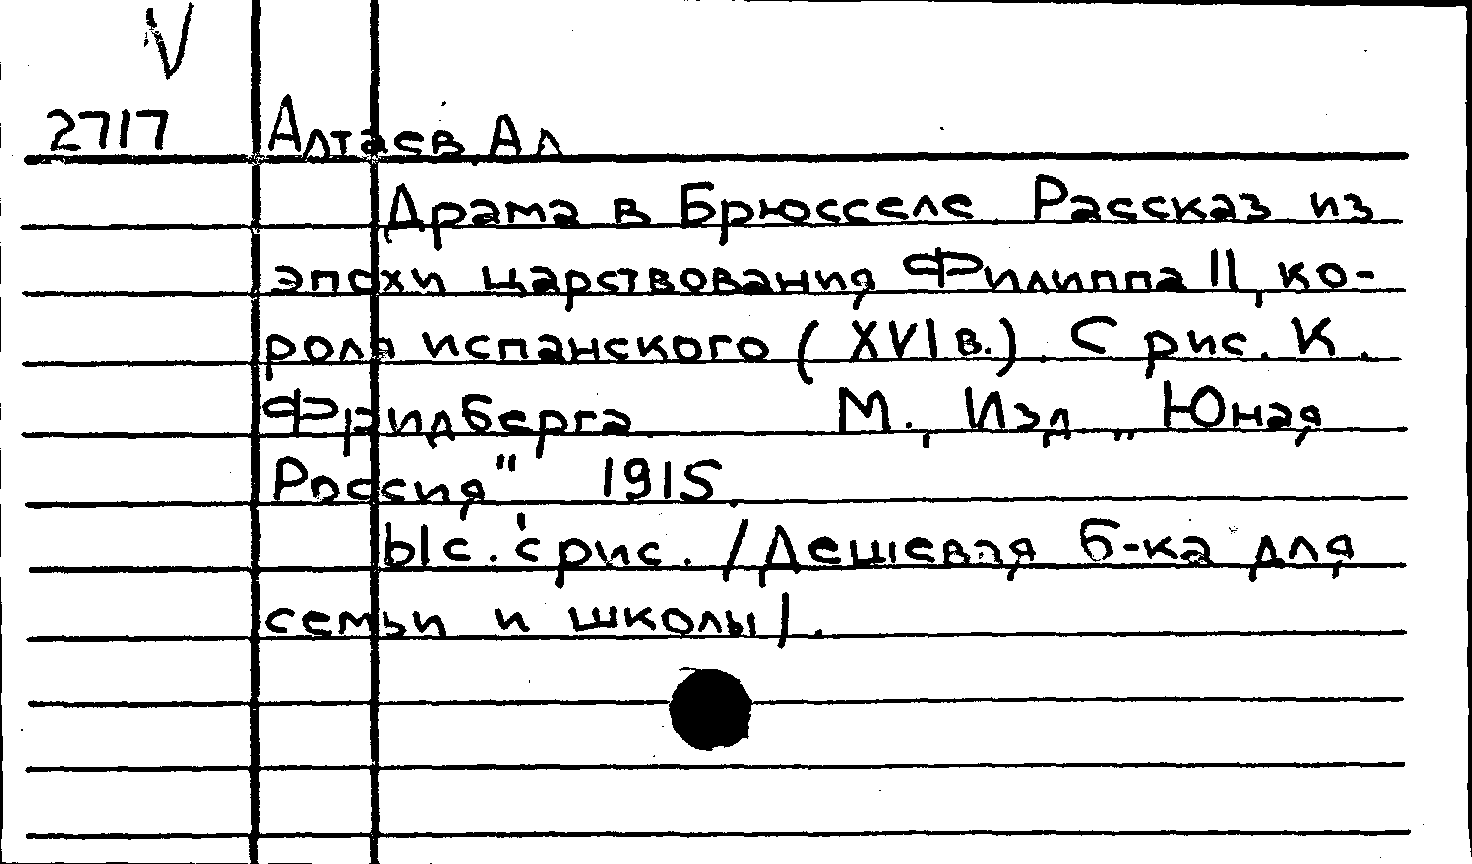 V
2717 Алтаев, Ал
Драма в Брюсселе. Рассказ из
эпохи царствования Филиппа II, ко-
роля испанского (XVI в.). С рис. К.
Фридберга М., Изд. „Юная
Россия" 1915.
61с. с рис. /Дешевая б-ка для
семьи и школы/.